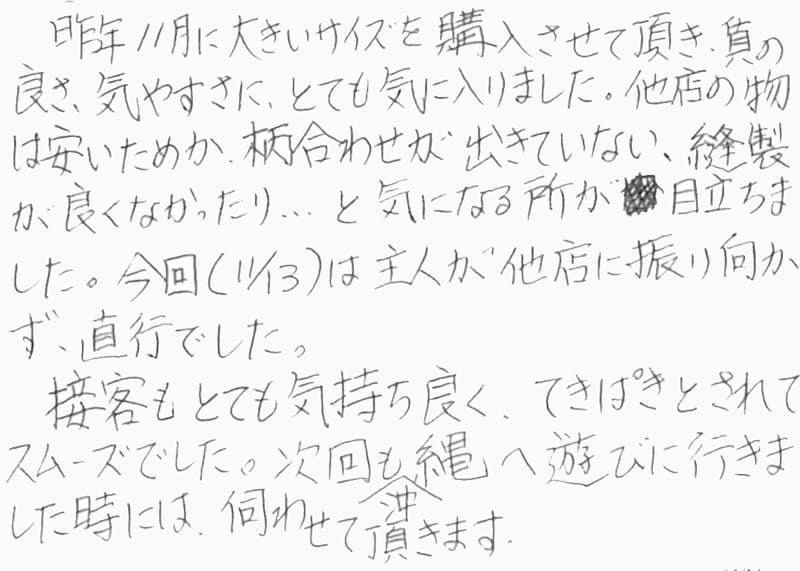 昨年11月に大きいサイズを購入させて頂き、質の
良さ、気やすさに、とても気に入りました。他店の物
は安いためか、柄合わせが出きていない、縫製
が良くなかったり…と気になる所が目立ちま
した。今回(11/13)は主人が他店に振り向か
ず、直行でした。
接客もとても気持ち良く、てきぱきとされて
スムーズでした。次回も沖縄へ遊びに行きま
した時には、伺わせて頂きます。